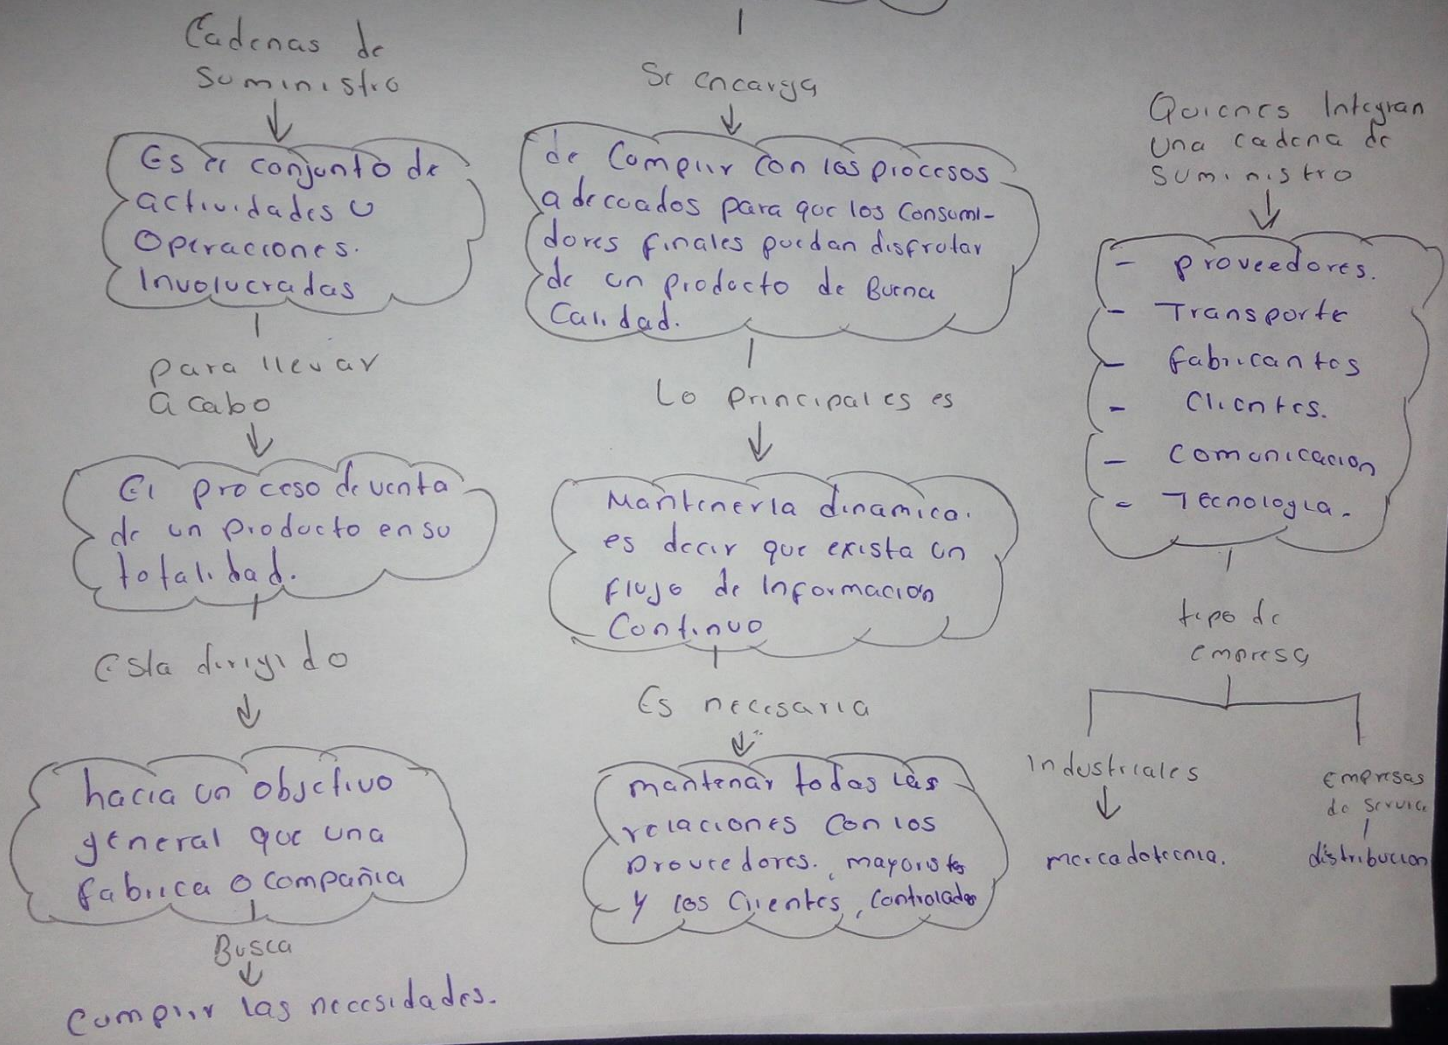 Cadenas de
Suministro
Es el conjunto de
actividades u
Operaciones.
Involucradas
para llevar
a cabo
El proceso de venta
de un producto en su
totalidad.
Esta dirigido
hacia un objetivo
general que una
fabrica o compañia
Busca
cumplir las necesidades.
Se encarga
de Cumplir con los procesos
adecuados para que los consumi-
dores finales puedan disfrutar
de un producto de Buena
Calidad.
Lo principales es
Mantenerla dinamica.
es decir que exista un
flujo de informacion
Continuo
Es necesaria
mantenar todas las
relaciones con los
proveedores, mayoristas
y los clientes, controlados
Quienes Integran
una cadena de
suministro
- proveedores.
- Transporte
- fabricantes
- Clientes.
- comunicacion
- Tecnologia.
tipo de
empresa
industriales
mercadotecnia.
empresas
de service
distribucion